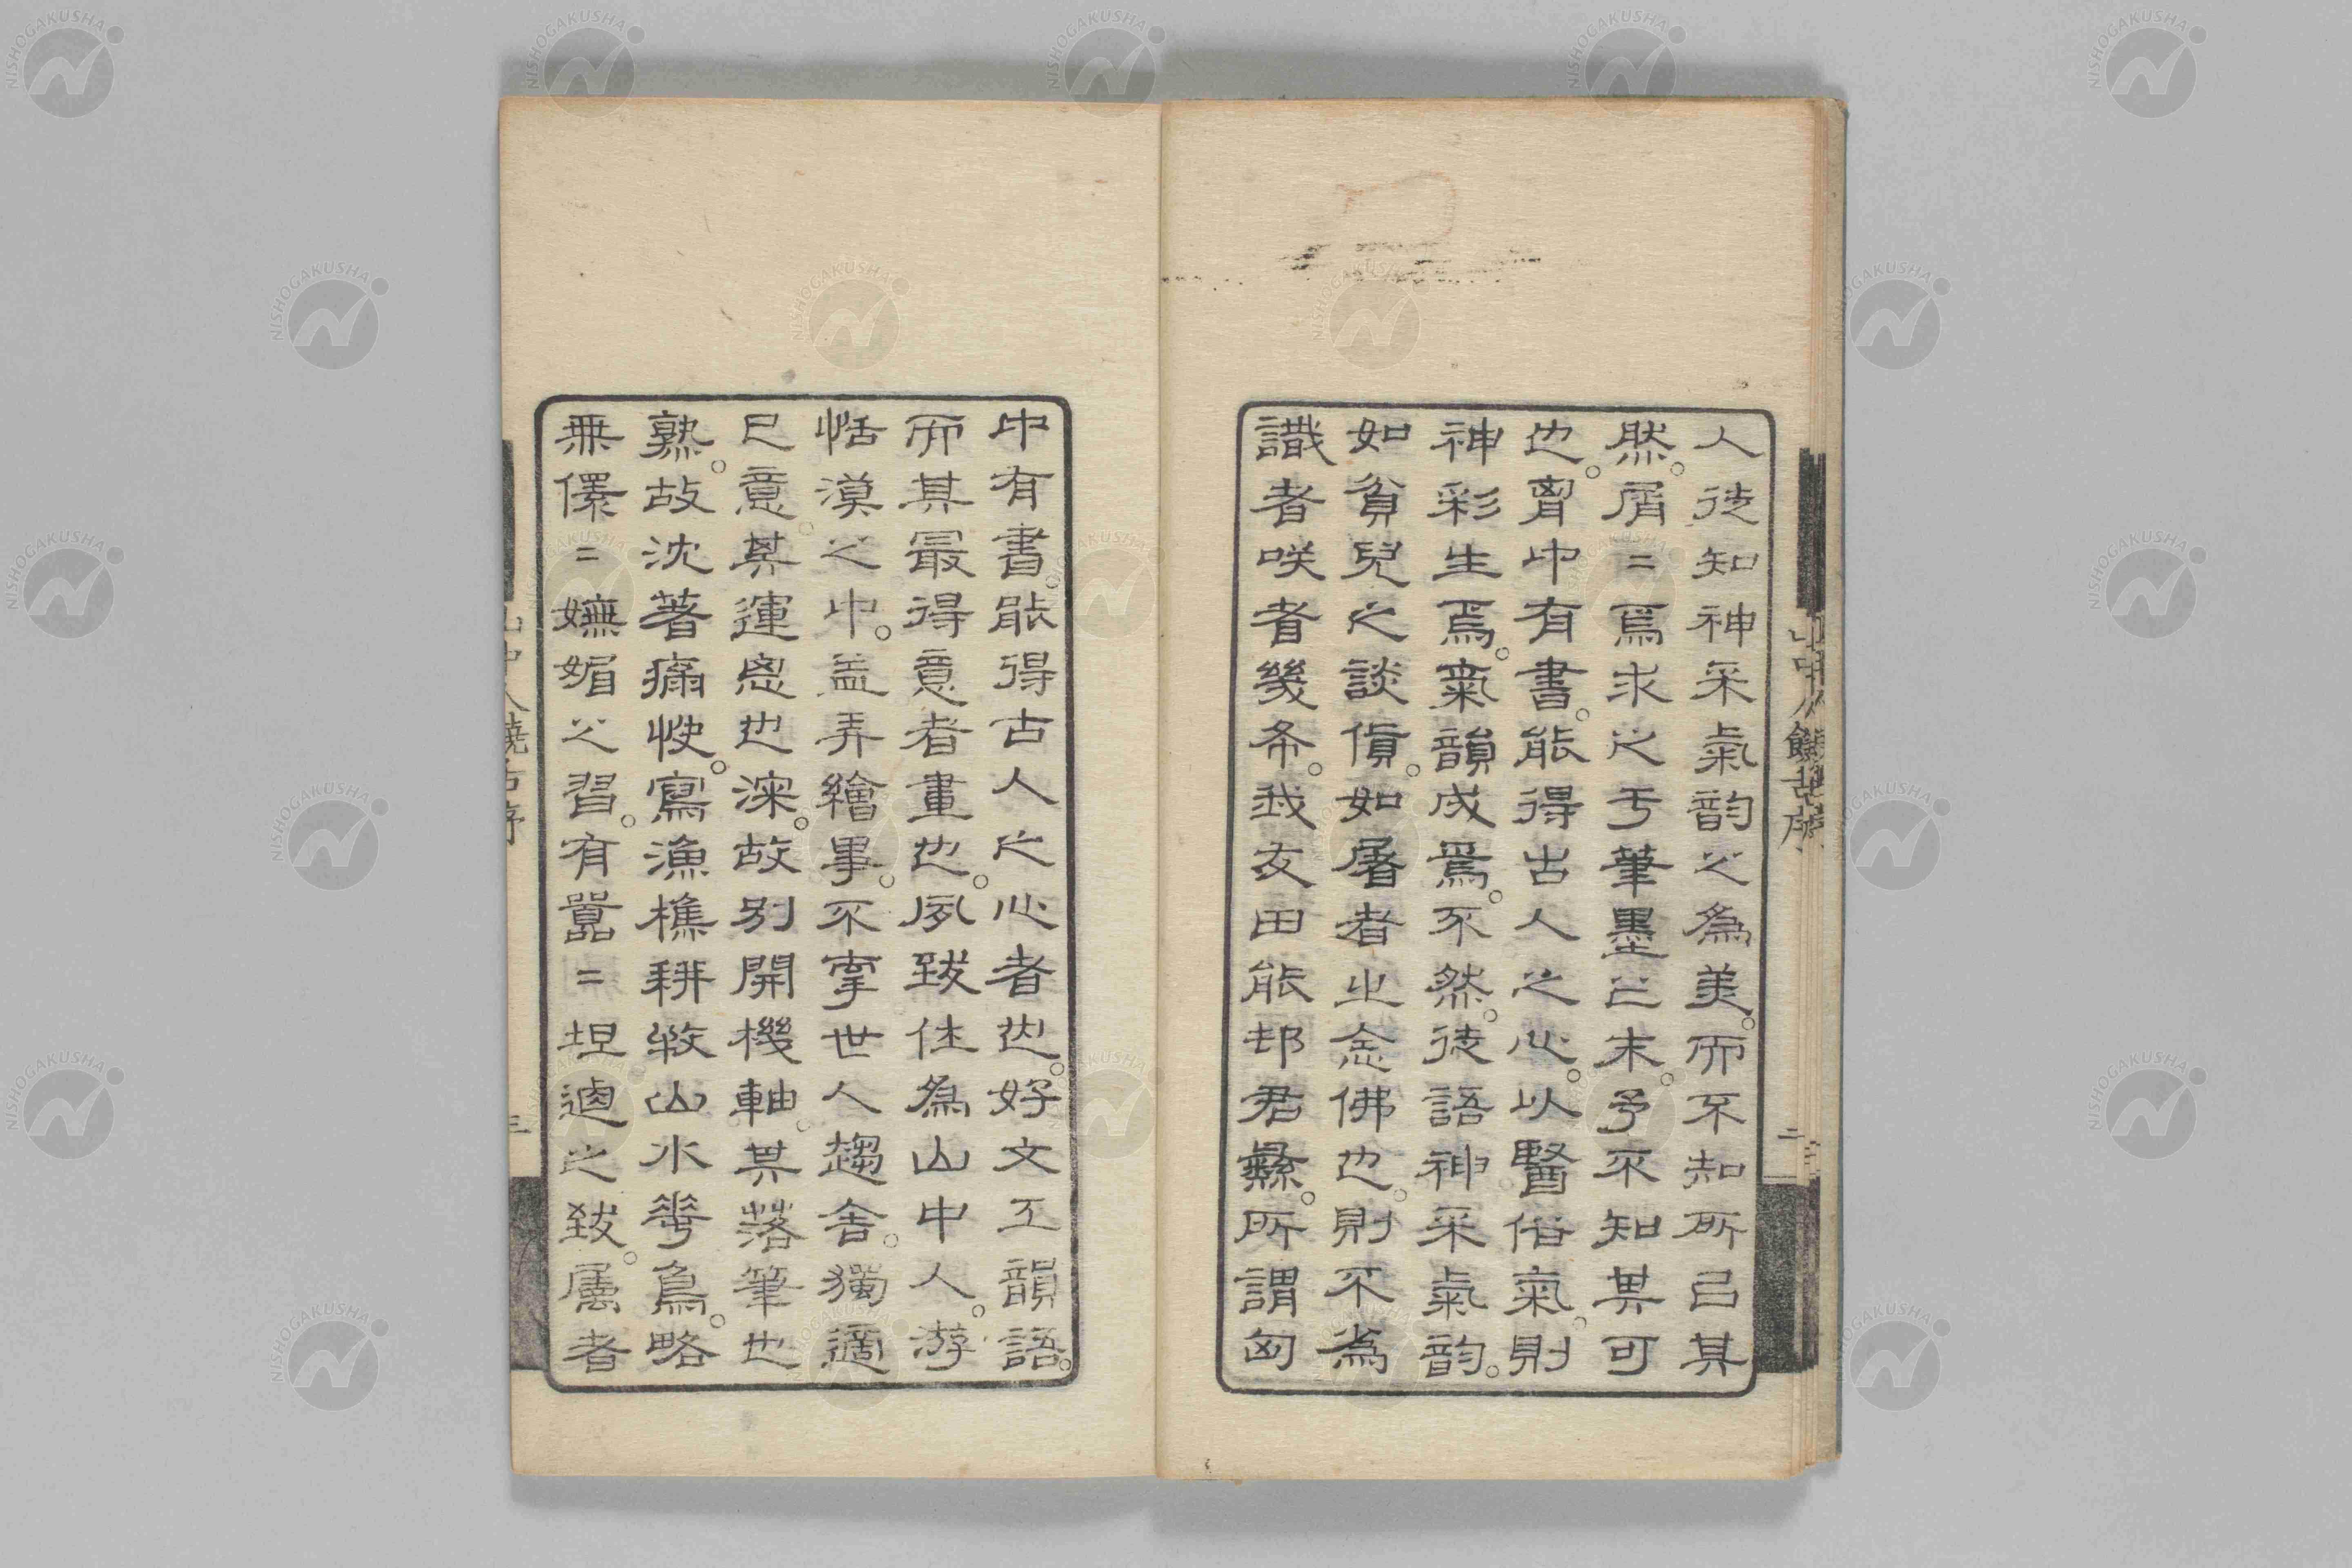 人徒知神采氣韵之為美。而不知所㠯其
然。屑〻焉求之于筆墨之末。予不知其可
也。胷中有書。能得古人之心。以醫俗氣。則
神彩生焉。氣韻成焉。不然。徒語神采氣韵。
如貧兒之談價。如屠者之念佛也。則不為
識者咲者幾希。我友田能邨君彝。所謂匈
中有書。能得古人之心者也。好文工韻語。
而其最得意者畫也。夙致住為山中人。游
恬漠之中。蓋弄繪事。不拿世人趨舍。獨適
已意。其運思也深。故別開機軸。其落筆也
熟。故沈著痛快。寫漁樵耕牧山水華鳥。略
無僸〻嫵媚之習。有囂〻坦逌之致。属者
山中人饒舌序
二
三